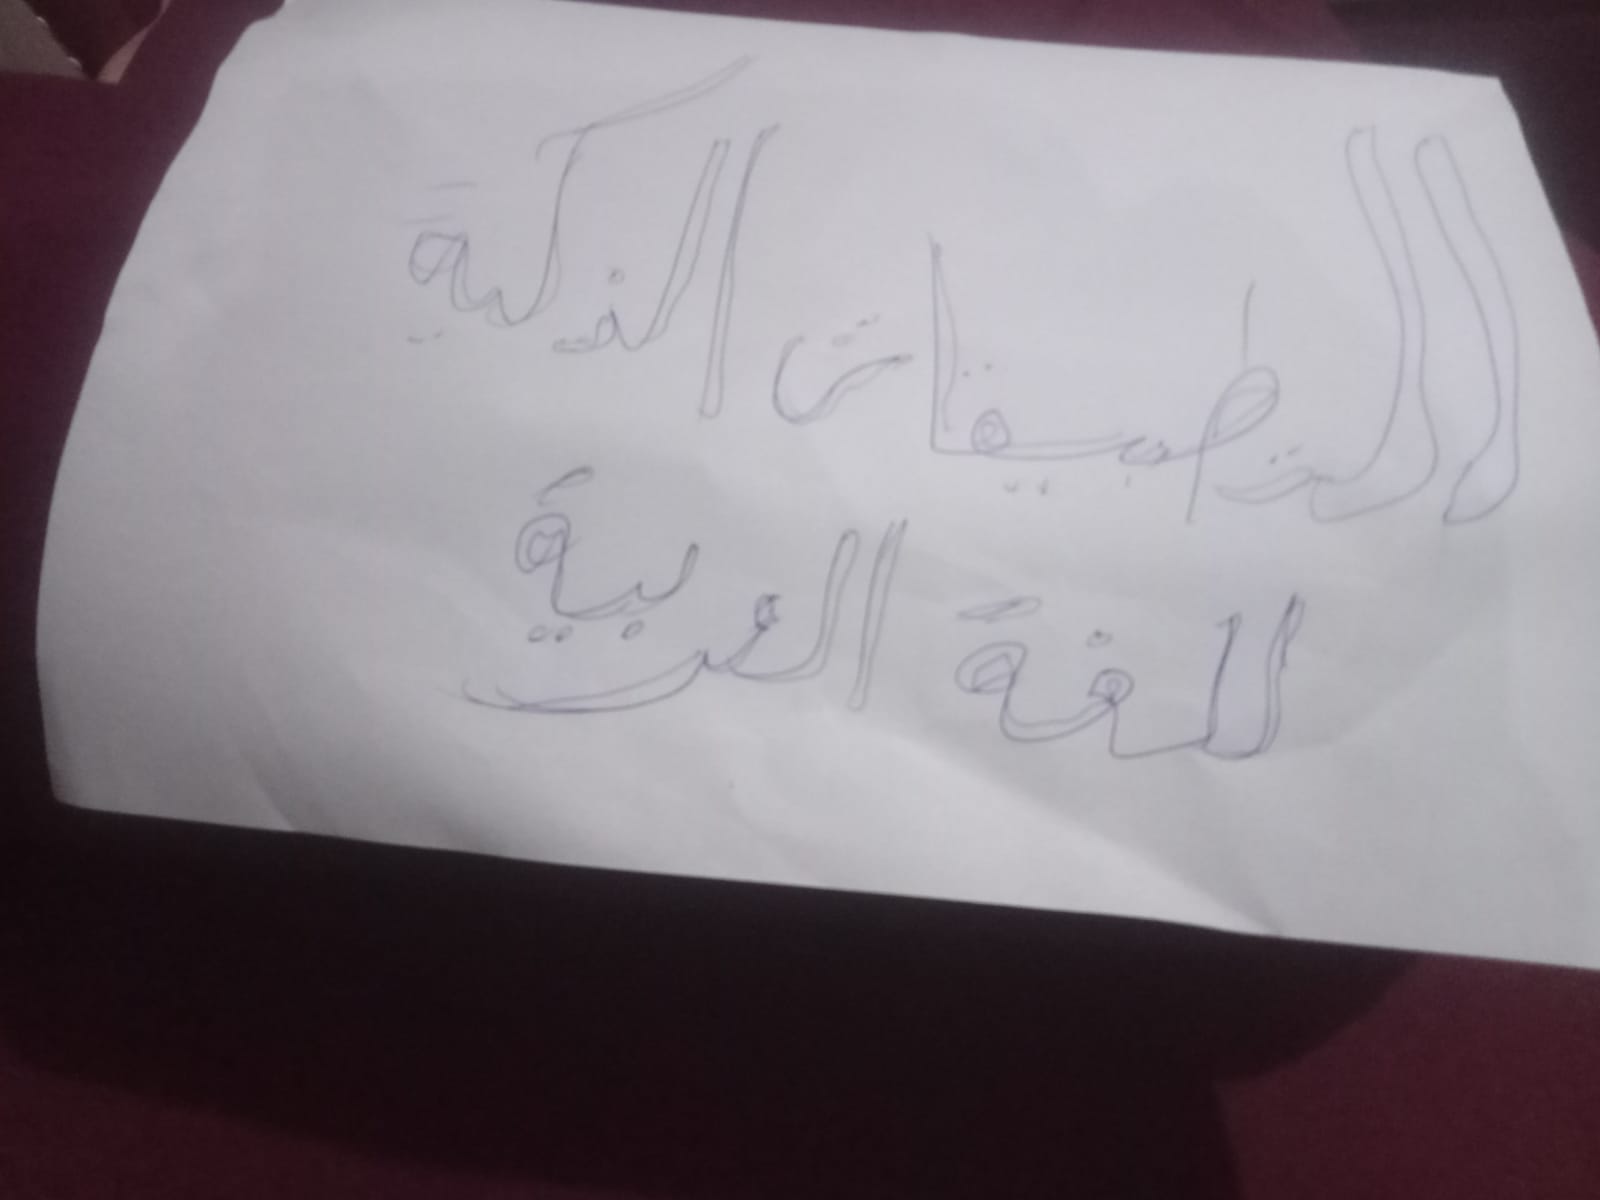 التطبيقات الذكية
للغة العربية